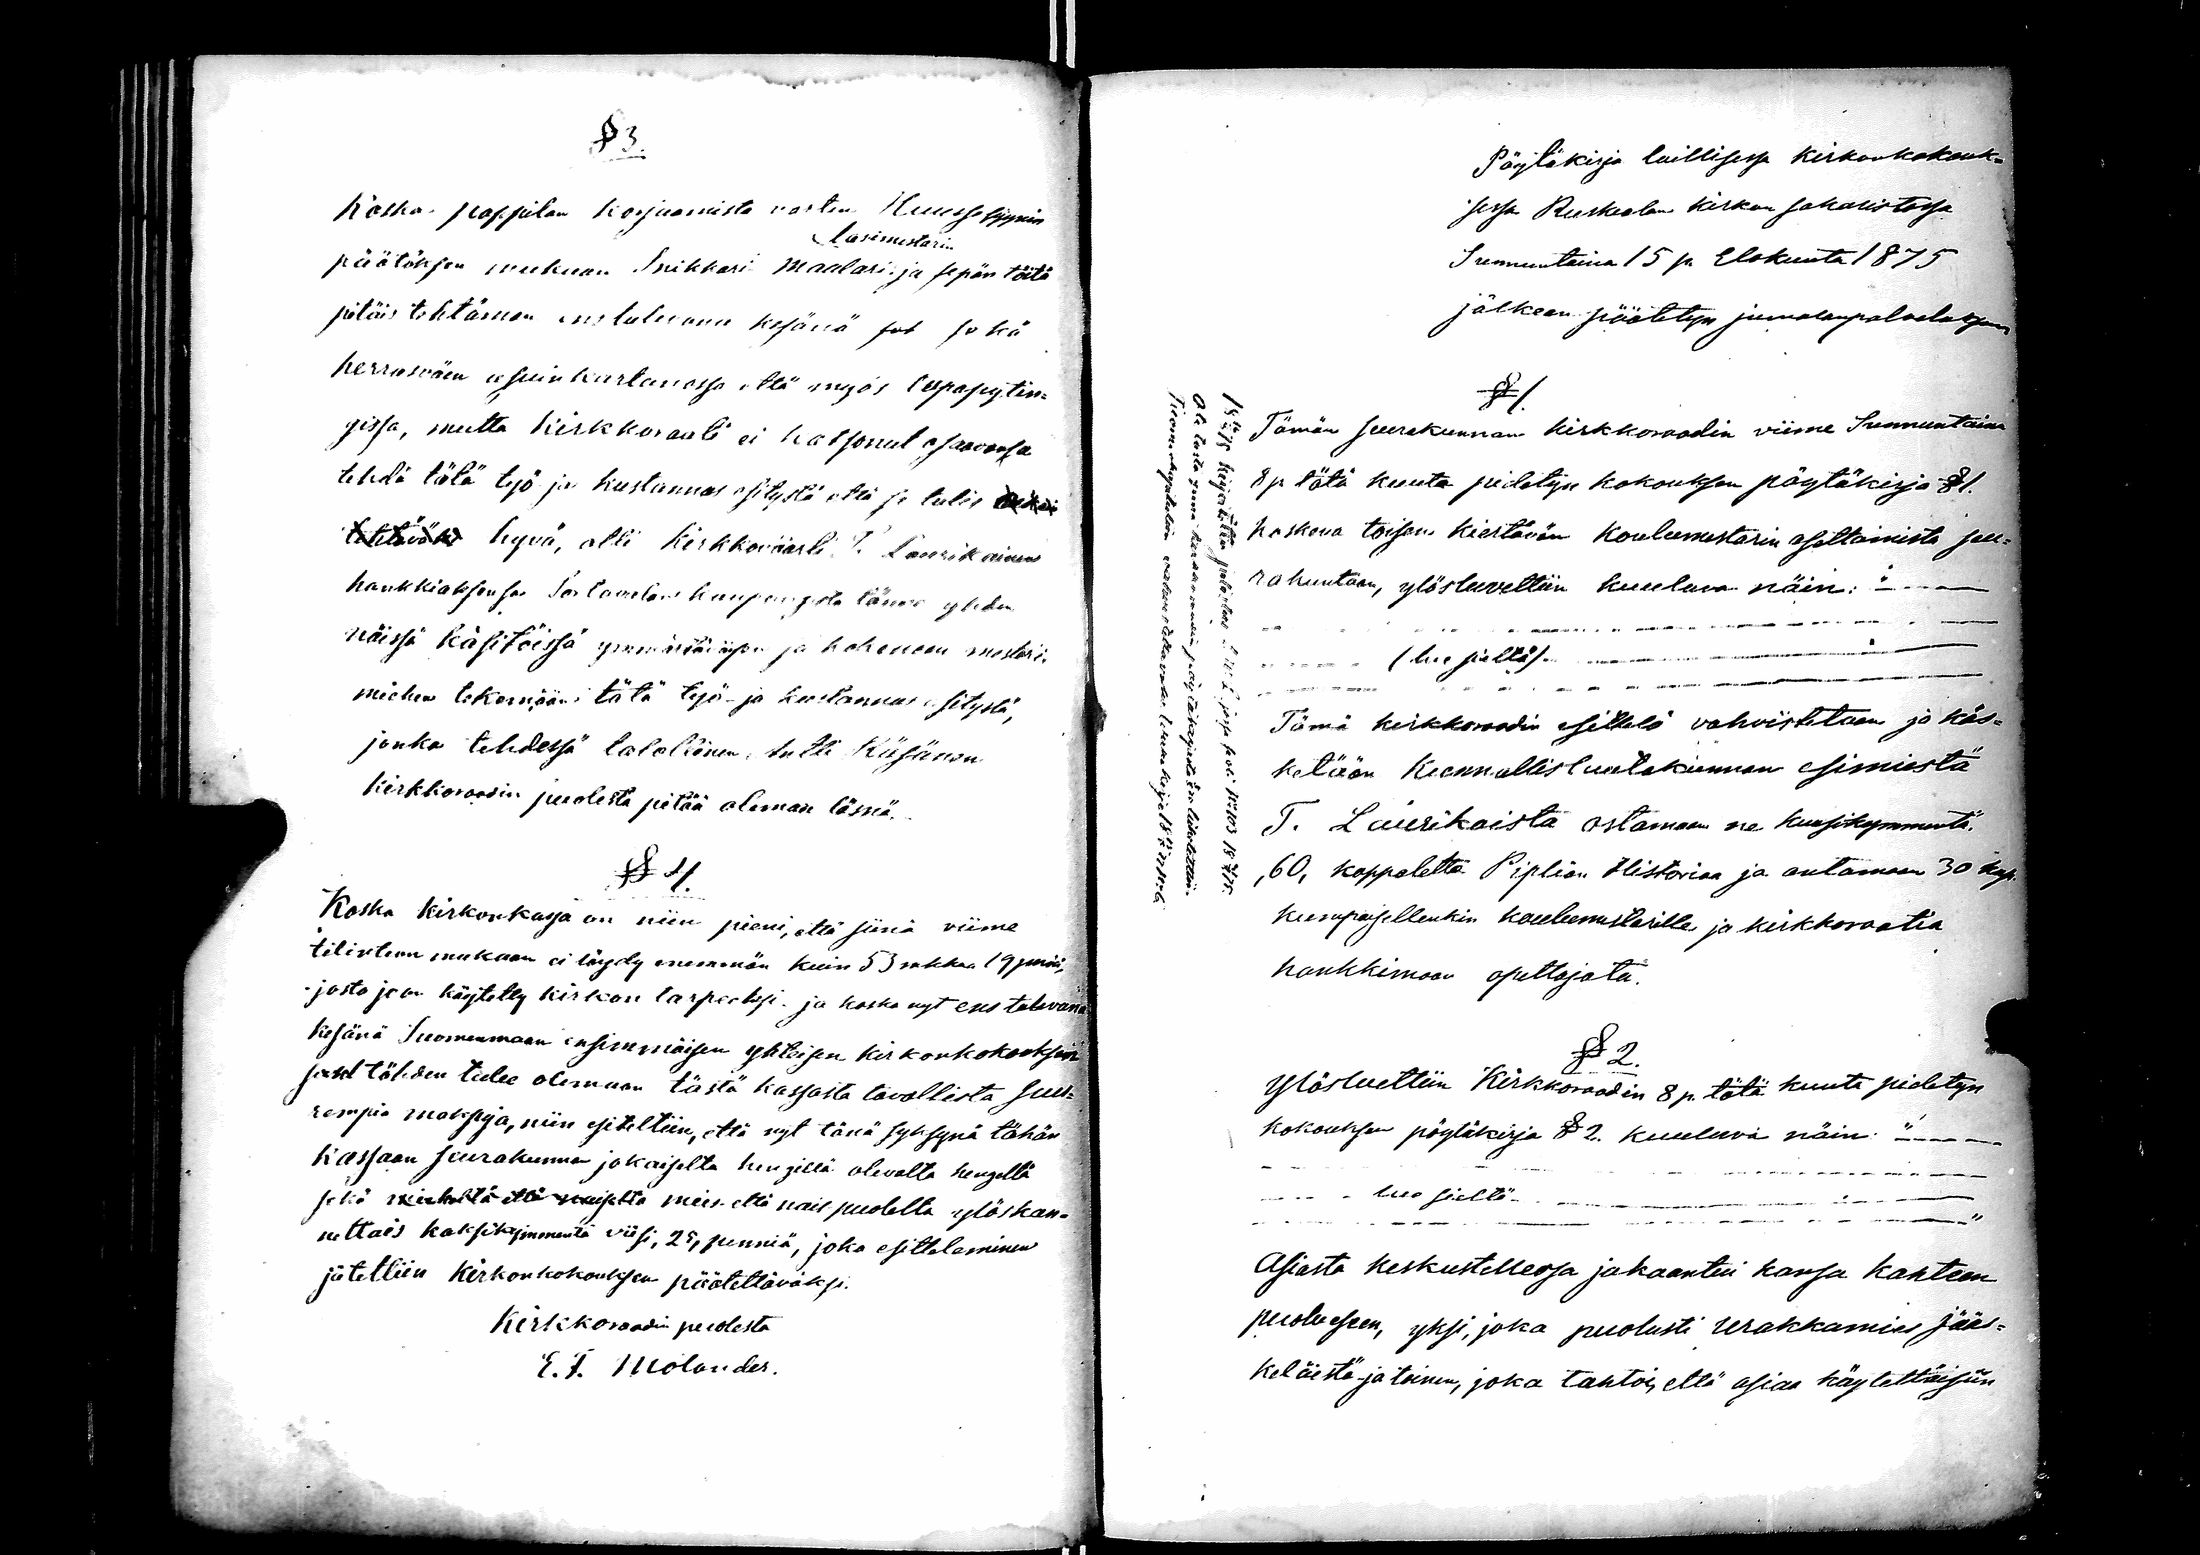 § 3.
Koska pappilan korjaamista varten Huussyynin
Lasimestarin
päätöksen mukaan Snikkari Maalari ja sepän töitä
pitäis tehtämän ens tulevana kesänä sekä
herrasväen asuinkartanossa että myös
gissa, mutta Kirkkoraati ei katsonut osaavansa
tehdä tätä työ- ja kustannus esitystä että se tulis
tehtäväksi hyvä, otti Kirkkoväärti T. Laurikainen
hankkiaksensa Sortavalan kaupungista tänne yhden
näissä käsitöissä ymmärtäväisen ja kokeneen mestari-
miehen tekemään tätä työ- ja kustannus esitystä,
jonka tehdessä talollinen Antti Kiisänen
kirkkoraadin puolesta pitää oleman läsnä.
§ 4.
Koska kirkonkassa on niin pieni, että siinä viime
tilinteon mukaan ei löydy enemmän kuin 53 markkaa 19 penniä,
josta jo on käytetty kirkon tarpeeksi ja koska nyt ens tulevana
kesänä Suomenmaan ensimmäisen yhteisen kirkonkokouksen
tähden tulee olemaan tästä kassasta tavallista suu-
rempia maksuja, niin esiteltiin, että nyt tänä syksynä tähän
kassaan seurakunnan jokaiselta hengillä olevalta hengeltä
sekä mieheltä että naiselta mies- että naispuolelta ylöskan-
nettais kaksikymmentä viisi, 25, penniä, joka esitteleminen
jätettiin Kirkonkokouksen päätettäväksi.
Kirkkoraadin puolesta
E. F. Molander.
Pöytäkirja laillisessa kirkonkokouk-
sessa Ruskealan kirkon sakaristossa
Sunnuntaina 15 p. Elokuuta 1875
jälkeen päätetyn jumalanpalveluksen
§ 1.
Tämän seurakunnan kirkkoraadin viime Sunnuntaina
8 p. tätä kuuta pidetyn kokouksen pöytäkirja § 1.
koskeva toisen kiertävän koulumestarin asettamista seu-
rakuntaan, ylösluvettiin kuuluva näin: "
(lue sieltä)
Tämä kirkkoraadin esittelö vahvistetaan ja käs-
ketään Kunnallislautakunnan esimiestä
T. Laurikaista ostamaan ne kuusikymmentä,
,60, kappaletta Piplian Historiaa ja antamaan 30 kap.
kumpaisellenkin koulumestarille ja kirkkoraatia
hankkimaan opettajata.
§ 2.
Ylösluettiin Kirkkoraadin 8 p. tätä kuuta pidetyn
kokouksen pöytäkirja § 2. kuuluva näin: "
lue sieltä
"
Asiasta keskustellessa jakaantui kansa kahteen
puolueseen, yksi, joka puolusti urakkamies Jääs-
keläistä ja toinen, joka tahtoi, että asiaa käytettäisiin